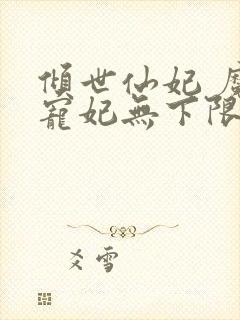 傾世仙妃
寵妃無下限
爻雪